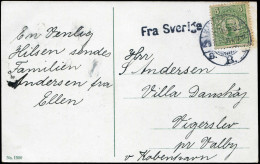 Fra Sverige
En Venlig
Hilsen sendes
Familien
Andersen fra
Ellen
Hrr
S Andersen
Villa Danshøj
Vigerslev
pr Valby
v København